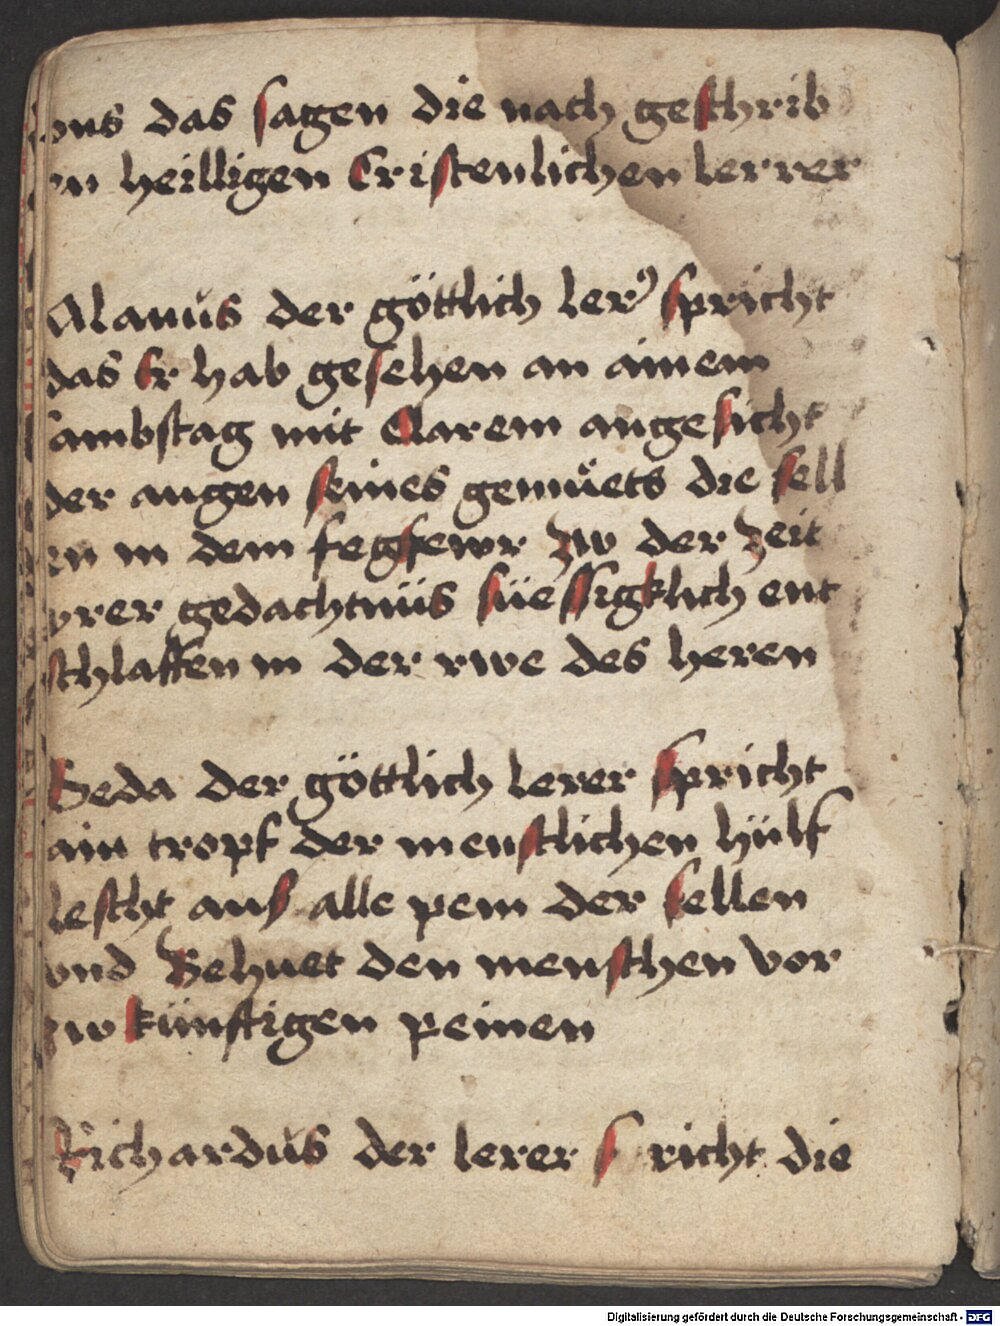 vns das sagen die nach geschrib
en heilligen Cristenlichen lerrer
Alanus der göttlich ler⁹ spricht
das Er hab gesehen an ainem
sambstag mit Clarem angesicht
der augen seines gemüets die sell
en in dem fegfewr zw der zeit
yrer gedachtnüs süessigklich ent
schlaffen in der rwe des heren
Beda der göttlich lerer spricht
ain tropf der menschlichen hülf
lescht aus alle pein der sellen
vnd Behuet den menschen vor
zw künftigen peinen
Richardus der lerer spricht die
Digitalisierung gefördert durch die Deutsche Forschungsgemeinschaft - DFG